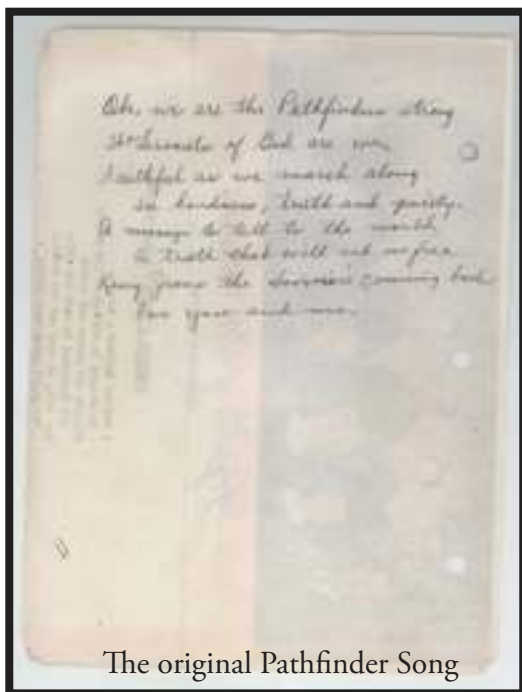 Oh, we are the Pathfinders strong
The Servants of God are we
Faithful as we march along
in kindness, truth and purity.
A message to tell to the world
a truth that will set us free
King Jesus the Saviour's coming back
for you and me.
The original Pathfinder Song